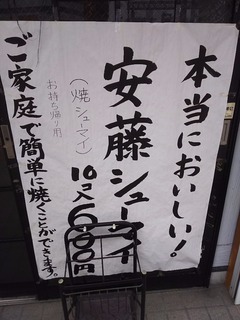 本当においしい!
安藤シューマイ
(焼シューマイ)
10コ入600円
お持ち帰り用
ご家庭で簡単に焼くことができます。